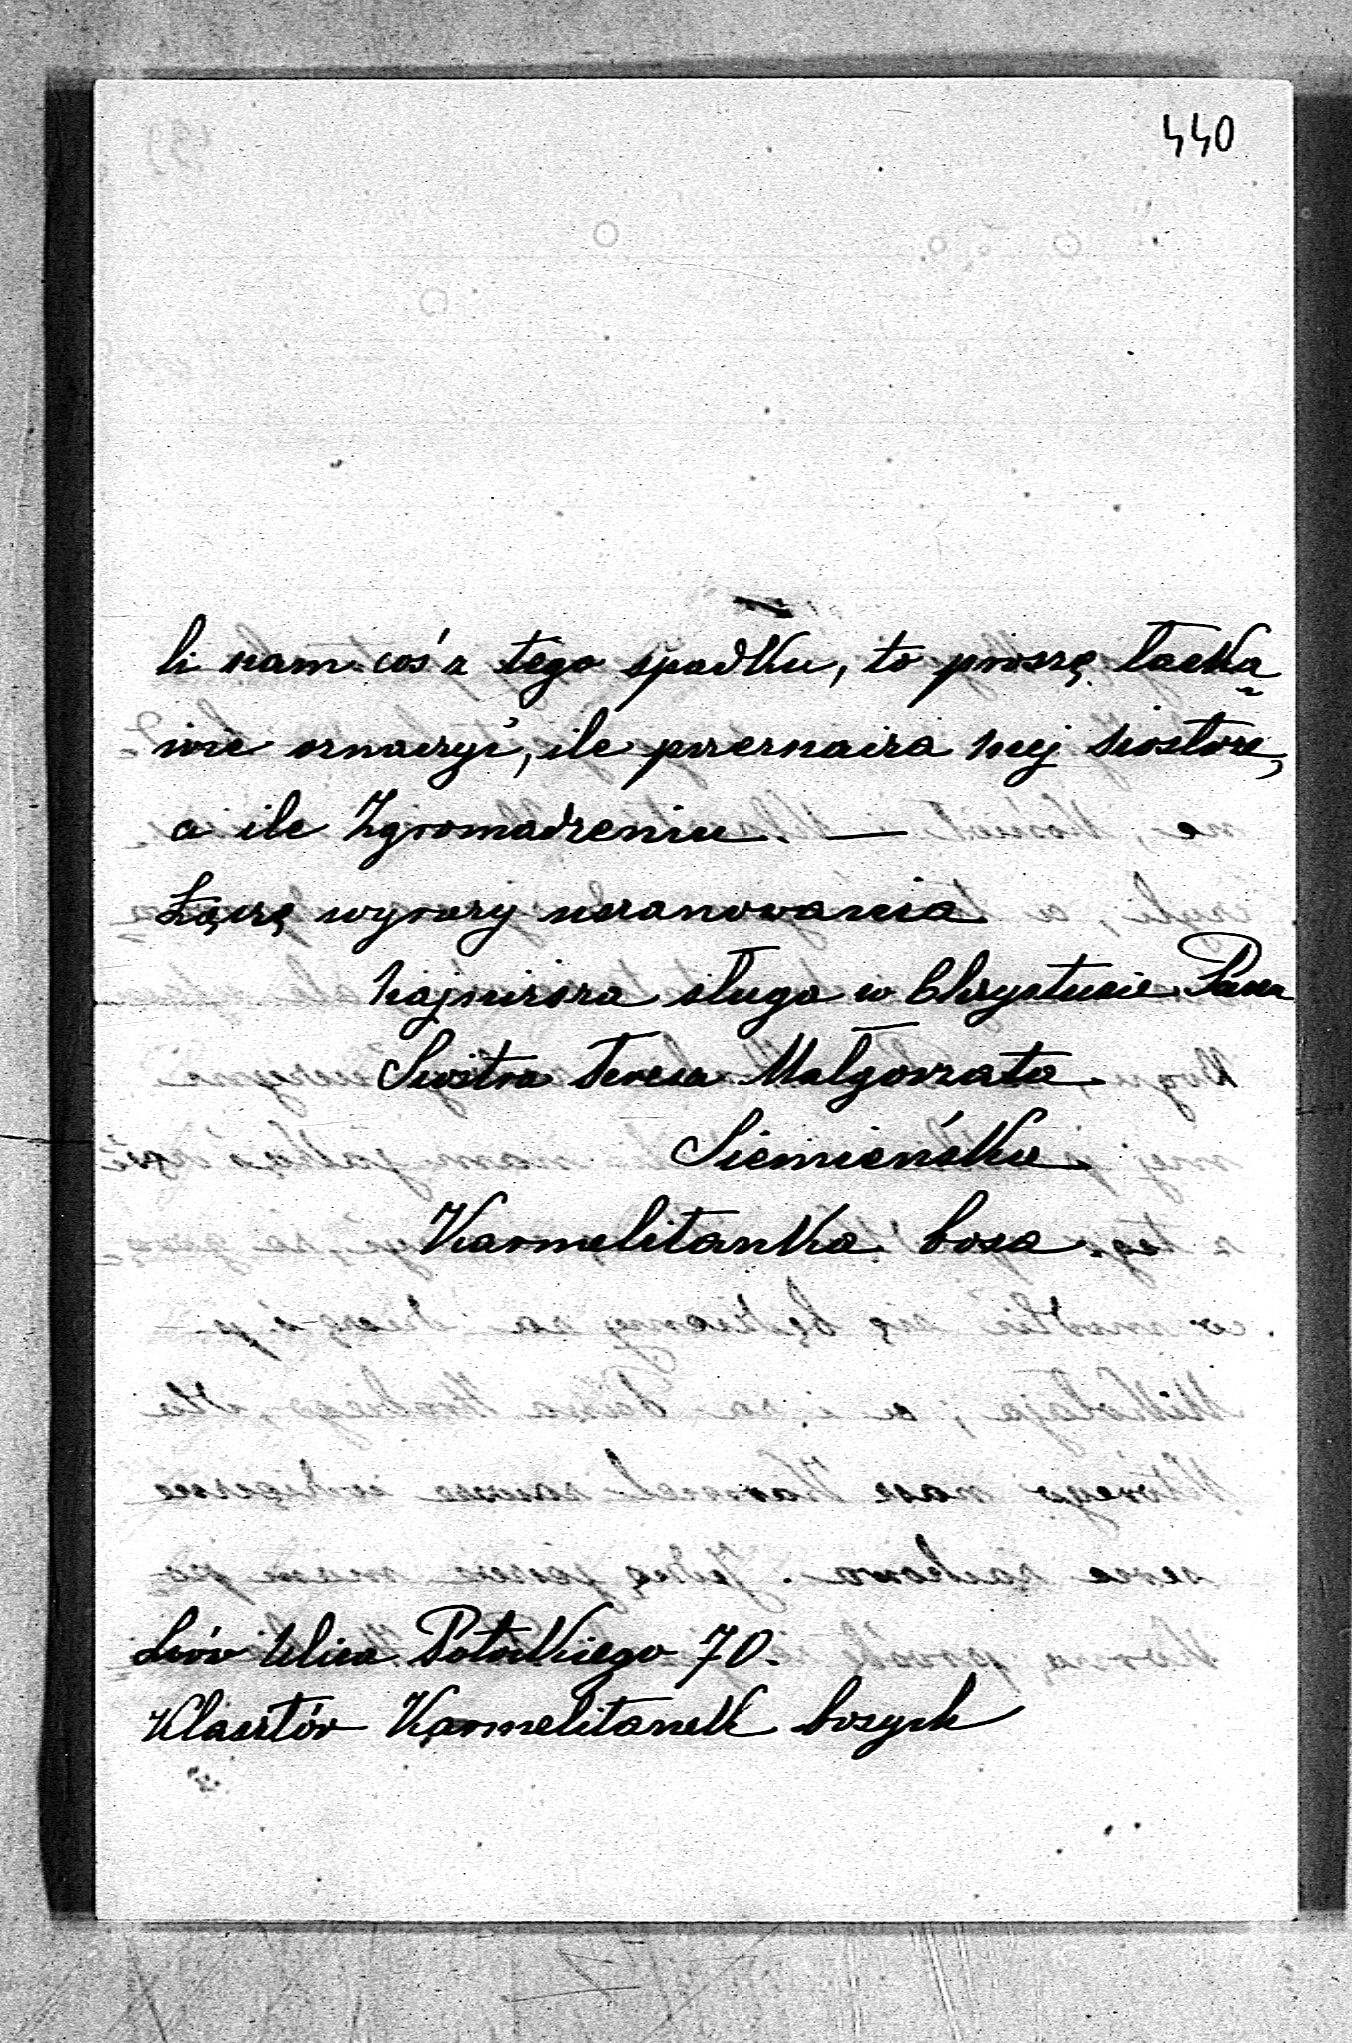 440
li nam coś z tego spadku, to proszę łaska
wie oznaczyć, ile przeznacza mej siostrze,
a ile Zgromadzeniu. —
Łączę wyrazy uszanowania
najniższa sługa w Chrystusie Panu
Siostra Teresa Małgorzata
Siemieńska
Karmelitanka bosa.
Lwów Ulica Potockiego 70.
Klasztór Karmelitanek bosych